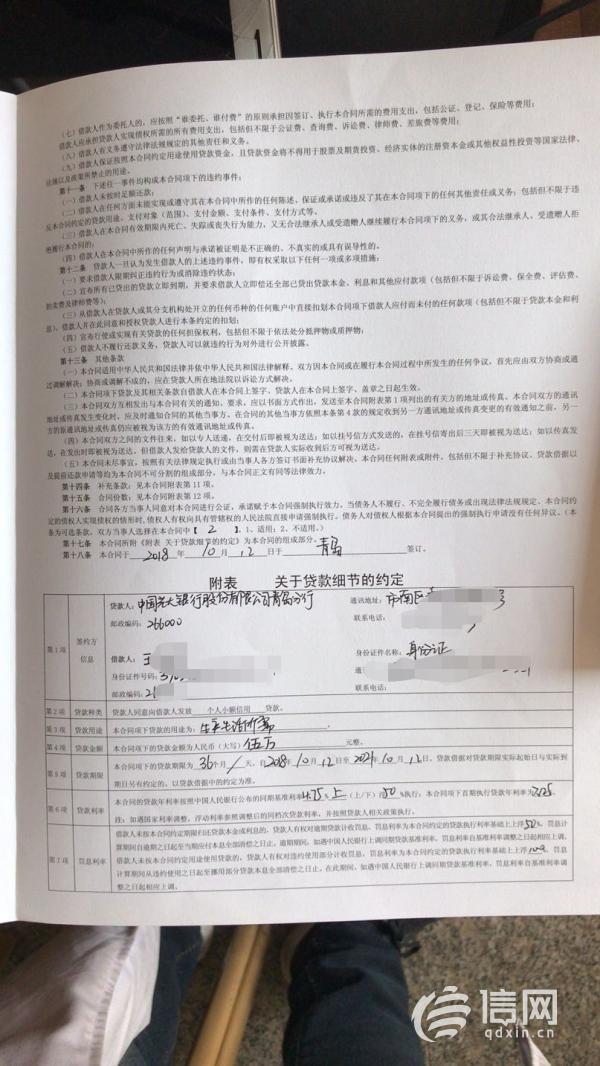 （七）借款人作为委托人的，应按照“谁委托、谁付费”的原则承担因签订、执行本合同所需的费用支出，包括公证、登记、保险等费用；
借款人应承担贷款人实现债权所需的所有费用支出，包括但不限于公证费、查询费、诉讼费、律师费、差旅费等费用；
（八）借款人有义务遵守法律法规规定的其他责任和义务。
（九）借款人保证按照本合同约定用途使用贷款资金，且贷款资金将不得用于股票及期货投资、经济实体的注册资本金或其他权益性投资等国家法律、
法规以及政策所禁止的用途。
第十一条 下述任一事件均构成本合同项下的违约事件：
（一）借款人未按时足额还款；
（二）借款人在任何方面未能实现或遵守其在本合同中所作的任何陈述、保证或承诺或违反了其在本合同项下的任何其他责任或义务；包括但不限于违
反本合同约定的贷款用途、支付对象（范围）、支付金额、支付条件、支付方式等。
（三）借款人在本合同有效期限内死亡、失踪或丧失行为能力，又无合法继承人或受遗赠人继续履行本合同项下的义务，或其合法继承人、受遗赠人拒
绝履行本合同的；
（四）借款人在本合同中所作的任何声明与承诺被证明是不正确的、不真实的或具有误导性的。
第十二条 贷款人一旦认为发生借款人的上述违约事件，即有权采取以下任何一项或多项措施：
（一）要求借款人限期纠正违约行为或消除违约状态；
（二）宣布所有已贷出的贷款立即到期，并要求借款人立即偿还全部已贷出贷款本金、利息和其他应付款项（包括但不限于诉讼费、保全费、评估费、
拍卖费及律师费等）；
（三）从借款人在贷款人或其分支机构处开立的任何币种的任何账户中直接扣划本合同项下借款人应付而未付的任何款项（包括但不限于贷款本金和利
息），借款人并在此同意和授权贷款人进行本条约定的扣划；
（四）宣布行使或实现有关贷款的任何担保权利，包括但不限于依法处分抵押物或质押物；
（五）借款人不履行还款义务，贷款人可以就违约行为对外进行公开披露。
第十三条 其他条款
（一）本合同适用中华人民共和国法律并依中华人民共和国法律解释。双方因本合同或在履行本合同过程中所发生的任何争议，首先应由双方协商或通
过调解解决；协商或调解不成的，应在贷款人所在地法院以诉讼方式解决。
（二）本合同项下贷款及其相关条款自借款人在本合同上签字、贷款人在本合同上签字、盖章之日起生效。
（三）本合同双方互相发出与本合同有关的通知、要求，应以书面方式作出，发送至本合同附表第1项列出的有关方的地址或传真。本合同双方的通讯
地址或传真发生变化时，应及时通知合同的其他当事方。在合同的其他当事方依照本条第4款的规定收到另一方通讯地址或传真变更的有效通知之前，另一
方的原通讯地址或传真仍应被视为该方的有效通讯地址或传真。
（四）本合同双方之间的文件往来，如以专人送递，在交付后即被视为送达；如以挂号信方式发送的，在挂号信寄出后三天即被视为送达；如以传真发
送，在发出时即被视为送达。但借款人发给贷款人的文件，则需在贷款人实际收到后方可视为送达。
（五）本合同未尽事宜，按照有关法律规定执行或由当事人各方签订书面补充协议解决。本合同任何附表或附件，包括但不限于补充协议、贷款借据以
及提前还款申请等均为本合同不可分割的组成部分，与本合同正文有同等法律效力。
第十四条 补充条款：见本合同附表第11项。
第十五条 合同份数：见本合同附表第12项。
第十六条 合同各方当事人同意对本合同进行公证，承诺赋予本合同强制执行效力。当债务人不履行、不完全履行债务或出现法律法规规定、本合同约
定的债权人实现债权的情形时，债权人有权向具有管辖权的人民法院直接申请强制执行。债务人对债权人根据本合同提出的强制执行申请没有任何异议。（本
条为可选条款，双方当事人选择在本合同中【 2 】1、适用；2、不适用。）
第十七条 本合同所附《附表 关于贷款细节的约定》为本合同的组成部分。
第十八条 本合同于 2018 年 10 月 12 日于 青岛 签订。
附表 关于贷款细节的约定
第1项 签约方信息
贷款人：中国光大银行股份有限公司青岛分行 通讯地址：市南区
邮政编码：266000 联系电话：
借款人：王 身份证件名称：身份证
身份证件号码：
邮政编码： 联系电话：
第2项 贷款种类 贷款人同意向借款人发放 个人小额信用 贷款。
第3项 贷款用途 本合同项下贷款的用途为：
第4项 贷款金额 本合同项下的贷款金额为人民币（大写）伍万 元整。
贷款期限 本合同项下的贷款期限为 36 个月/ 天，自 2018 年 10 月 12 日至 2021 年 10 月 12 日。贷款借据对贷款期限实际起始日与实际到
期日另有约定的，以贷款借据中的约定为准。
第6项 贷款利率 本合同的贷款年利率按照中国人民银行公布的同期基准利率 4.75% 上（上/下）浮 50 %执行；本合同项下首期执行贷款年利率为 7.125
注：如遇国家利率调整，浮动利率参照调整后的同档次贷款利率，并按照贷款人相关政策执行。
第7项 罚息利率 借款人未按本合同约定期限归还贷款本金或利息的，贷款人有权对逾期贷款计收罚息，罚息利率为本合同约定的贷款执行利率基础上上浮 50 %，罚息计
算期间自逾期之日起至当期应付本息全部清偿之日止。逾期期间，如遇中国人民银行上调同期贷款基准利率，罚息利率自基准利率调整之日起相应上调。
借款人未按本合同约定用途使用贷款的，贷款人有权对违约使用部分计收罚息，罚息利率为本合同约定的贷款执行利率基础上上浮 100
计算期间从违约使用之日起至挪用部分贷款本息全部清偿之日止，在此期间，如遇中国人民银行上调同期贷款基准利率，罚息利率自基准利率调
整之日起相应上调。
信网
qdxin.cn